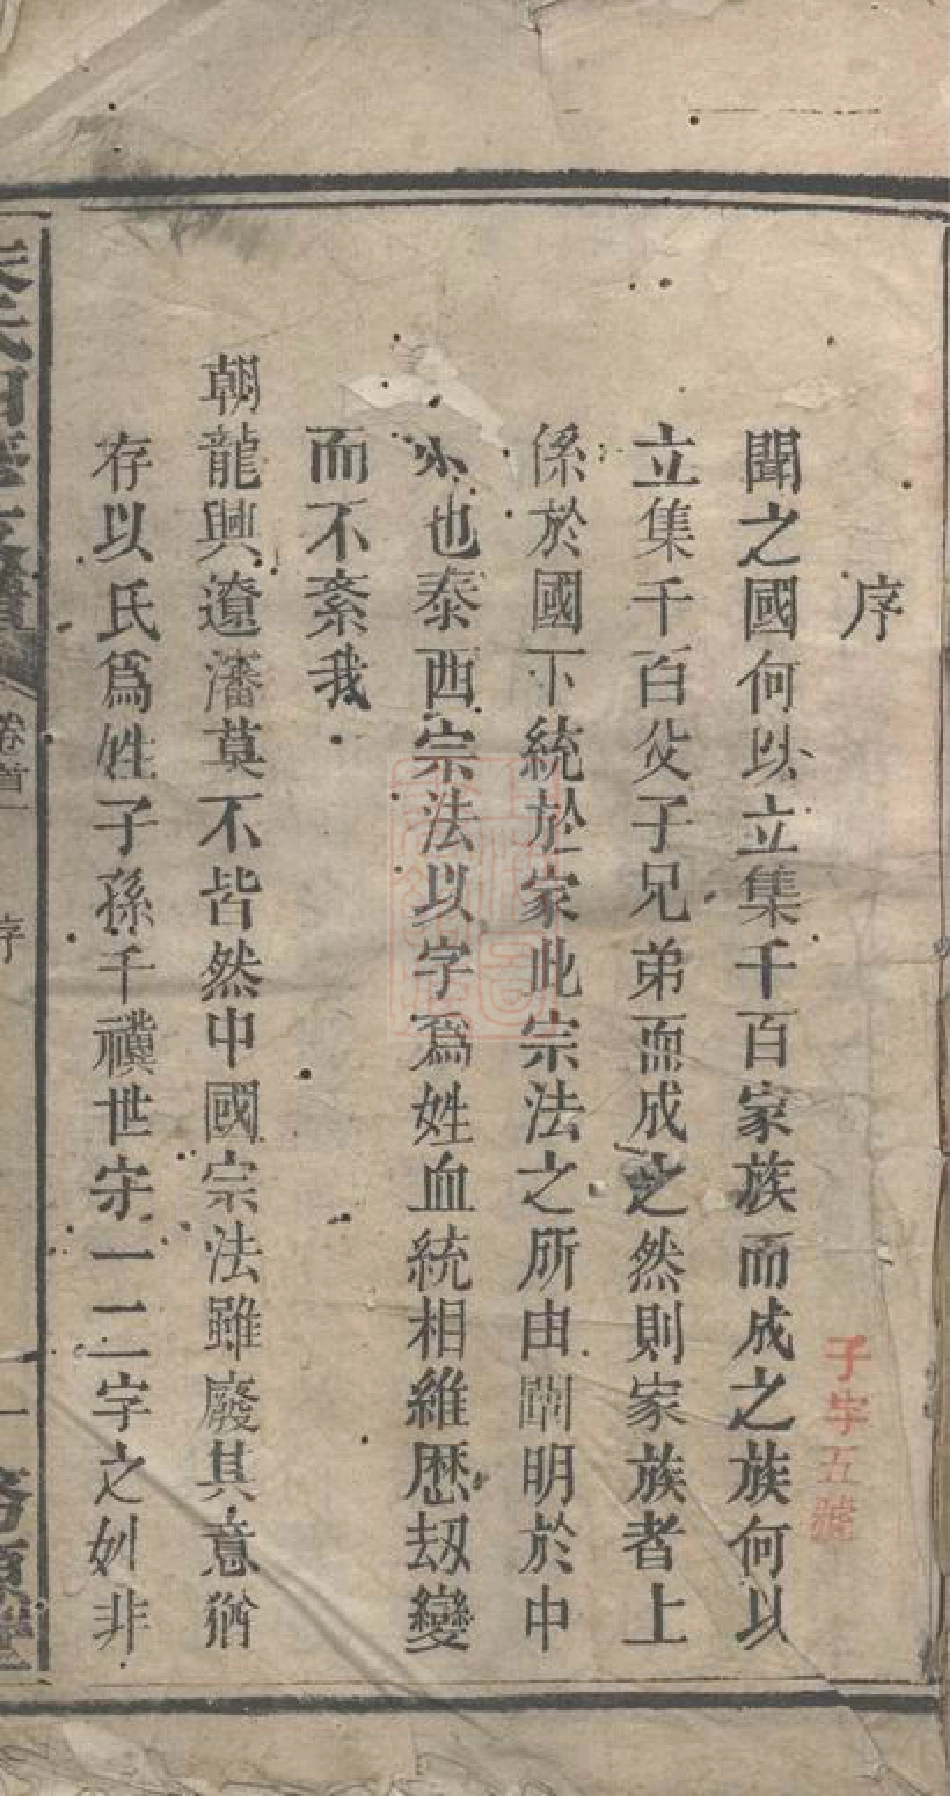 序
聞之國何以立集千百家族而成之族何以
立集千百父子兄弟而成之然則家族者上
係於國下統於家此宗法之所由闡明於中
外也泰西宗法以字爲姓血統相維歷劫變
而不紊我
朝龍興遼瀋莫不皆然中國宗法雖廢其意猶
存以氏爲姓子孫千禩世守一二字之姓非
子字五號
卷首一
序
一